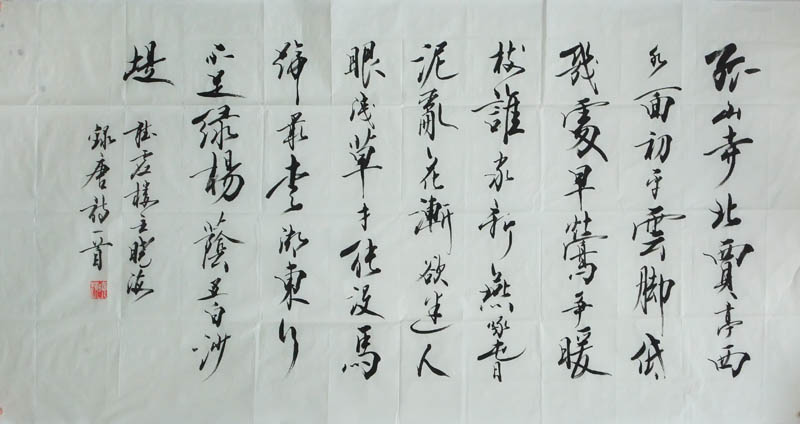 孤山寺北賈亭西
水面初平雲脚低
幾處早鶯爭暖
樹誰家新燕啄春
泥亂花漸欲迷人
眼淺草才能沒馬
蹄最愛湖東行
不足緑楊蔭里白沙
堤
樓主曉海
錄唐詩一首